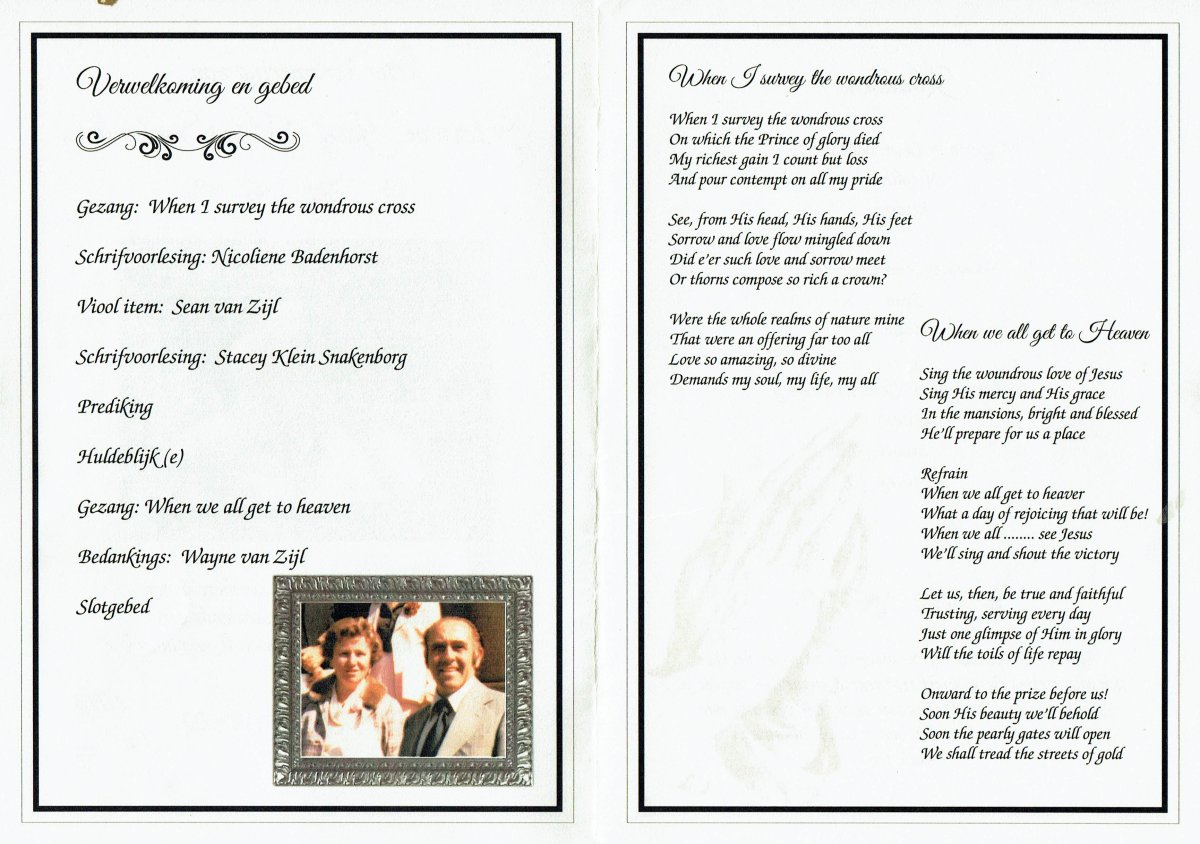 Verwelkoming en gebed
Gezang: When I survey the wondrous cross
Schrifvoorlesing: Nicoliene Badenhorst
Viool item: Sean van Zijl
Schrifvoorlesing: Stacey Klein Snakenborg
Prediking
Huldeblijk (e)
Gezang: When we all get to heaven
Bedankings: Wayne van Zijl
Slotgebed
When I survey the wondrous cross
When I survey the wondrous cross
On which the Prince of glory died
My richest gain I count but loss
And pour contempt on all my pride
See, from His head, His hands, His feet
Sorrow and love flow mingled down
Did e'er such love and sorrow meet
Or thorns compose so rich a crown?
Were the whole realms of nature mine
That were an offering far too all
Love so amazing, so divine
Demands my soul, my life, my all
When we all get to Heaven
Sing the woundrous love of Jesus
Sing His mercy and His grace
In the mansions, bright and blessed
He'll prepare for us a place
Refrain
When we all get to heaver
What a day of rejoicing that will be!
When we all ........ see Jesus
We'll sing and shout the victory
Let us, then, be true and faithful
Trusting, serving every day
Just one glimpse of Him in glory
Will the toils of life repay
Onward to the prize before us!
Soon His beauty we'll behold
Soon the pearly gates will open
We shall tread the streets of gold